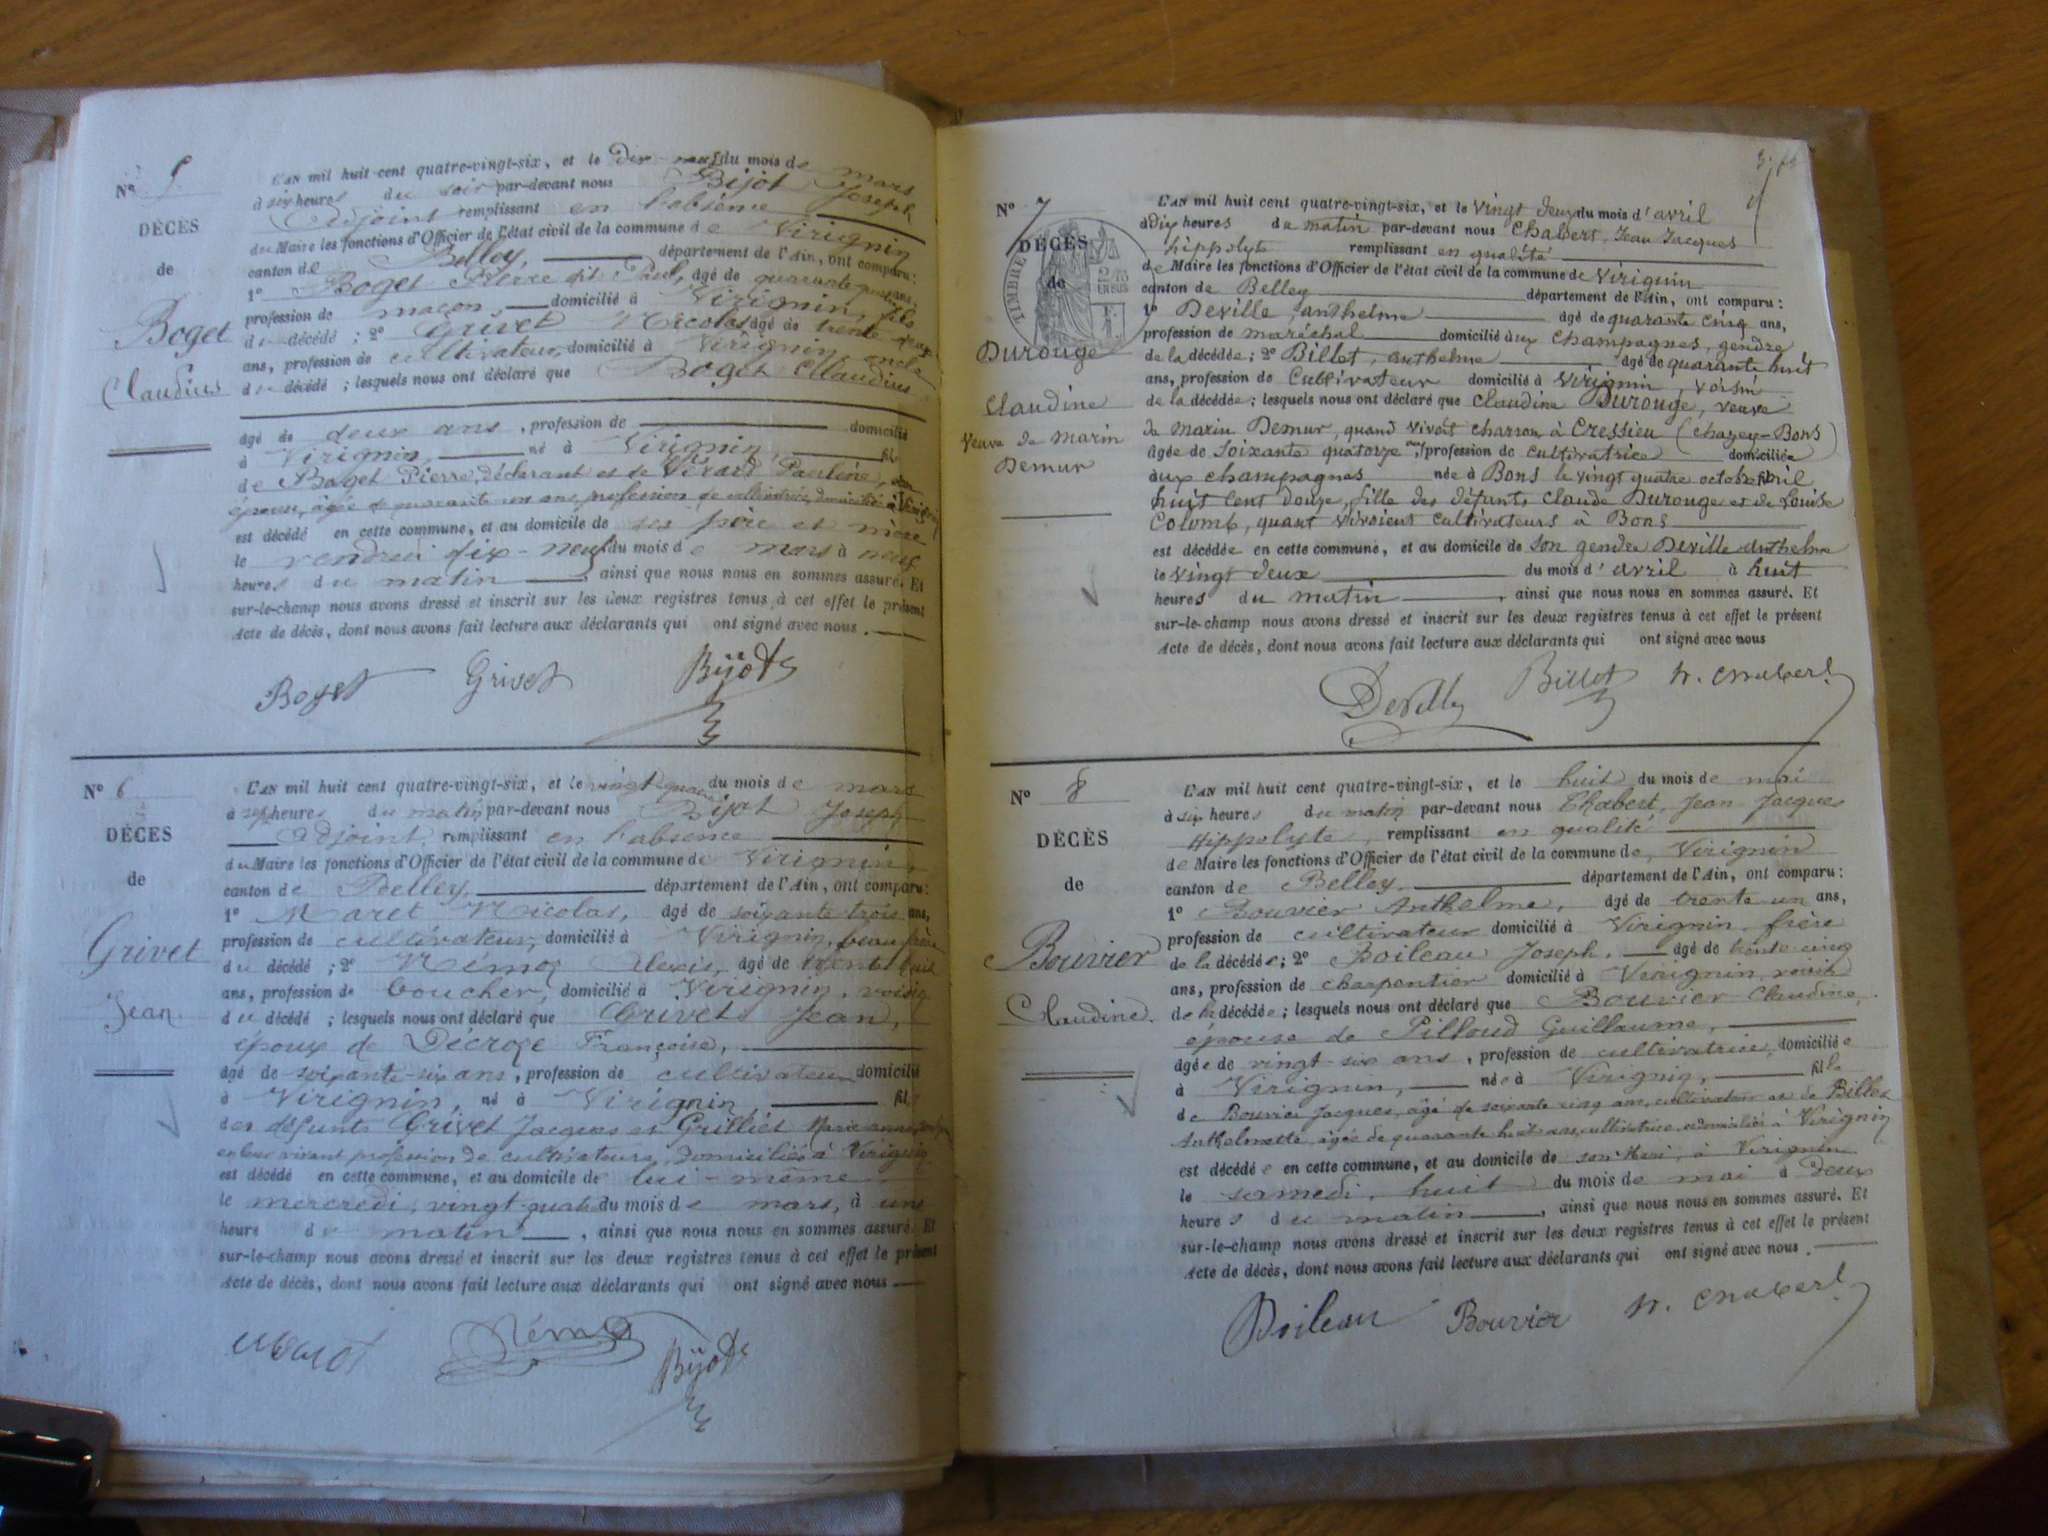 No 5
DÉCÈS
de
Boget
Claudius
L'an mil huit cent quatre-vingt-six, et le dix-neuf du mois de mars
à six heures du soir par-devant nous Bijot Joseph
Adjoint remplissant en l'absence
du Maire les fonctions d'Officier de l'état civil de la commune de Virignin
canton de Belley, département de l'Ain, ont comparu :
1o Boget Pierre dit Paul, âgé de quarante ans,
profession de maçon domicilié à Virignin,
du décédé ; 2o Grivet Nicolas âgé de trente deux
ans, profession de cultivateur, domicilié à Virignin, oncle
du décédé ; lesquels nous ont déclaré que Boget Claudius
âgé de deux ans, profession de domicilié
à Virignin, né à Virignin, fils
de Boget Pierre, déclarant et de Pauline, son
épouse, âgée de quarante un ans, profession de cultivatrice, domiciliée à Virignin
est décédé en cette commune, et au domicile de ses père et mère
le vendredi dix-neuf du mois de mars à neuf
heures du matin, ainsi que nous nous en sommes assuré. Et
sur-le-champ nous avons dressé et inscrit sur les deux registres tenus à cet effet le présent
Acte de décès, dont nous avons fait lecture aux déclarants qui ont signé avec nous.
Boget Grivet Bijot
No 6
DÉCÈS
de
Grivet
Jean
L'an mil huit cent quatre-vingt-six, et le vingt quatre du mois de mars
à sept heures du matin, par-devant nous Bijot Joseph
Adjoint, remplissant en l'absence
du Maire les fonctions d'Officier de l'état civil de la commune de Virignin
canton de Belley, département de l'Ain, ont comparu :
1o Maret Nicolas, âgé de soixante trois ans,
profession de cultivateur, domicilié à Virignin, beau frère
du décédé ; 2o Némoz Alexis, âgé de trente huit
ans, profession de boucher, domicilié à Virignin, voisin
du décédé ; lesquels nous ont déclaré que Grivet Jean,
époux de Décroze Françoise,
âgé de soixante-six ans, profession de cultivateur domicilié
à Virignin, né à Virignin fils
des défunts Grivet Jacques et Grilliet Marie
en leur vivant profession de cultivateurs, domiciliés à Virignin
est décédé en cette commune, et au domicile de lui-même
le mercredi, vingt-quatre du mois de mars, à une
heure du matin, ainsi que nous nous en sommes assuré. Et
sur-le-champ nous avons dressé et inscrit sur les deux registres tenus à cet effet le présent
Acte de décès, dont nous avons fait lecture aux déclarants qui ont signé avec nous
Maret Némoz Bijot
No 7
DÉCÈS
de
TIMBRE
Durouge
Claudine
veuve de Marin
Demur
L'an mil huit cent quatre-vingt-six, et le vingt deux du mois d'avril
à dix heures du matin par-devant nous Chabert, Jean Jacques
hippolyte remplissant en qualité
de Maire les fonctions d'Officier de l'état civil de la commune de Virignin
canton de Belley département de l'Ain, ont comparu :
1o Deville, anthelme âgé de quarante cinq ans,
profession de maréchal domicilié aux champagnes, gendre
de la décédée ; 2o Billet, anthelme âgé de quarante huit
ans, profession de cultivateur domicilié à Virignin, voisin
de la décédée ; lesquels nous ont déclaré que claudine Durouge, veuve
de Marin Demur, quand vivait charron à Cressieu (chazey-Bons)
âgée de soixante quatorze ans, profession de cultivatrice domiciliée
aux champagnes née à Bons le vingt quatre octobre mil
huit cent douze, fille des défunts claude Durouge et de Louise
Colomb, quant vivoient cultivateurs à Bons
est décédée en cette commune, et au domicile de son gendre Deville anthelme
le vingt deux du mois d'avril à huit
heures du matin, ainsi que nous nous en sommes assuré. Et
sur-le-champ nous avons dressé et inscrit sur les deux registres tenus à cet effet le présent
Acte de décès, dont nous avons fait lecture aux déclarants qui ont signé avec nous
Deville Billet h. chabert
No 8
DÉCÈS
de
Bouvier
Claudine
L'an mil huit cent quatre-vingt-six, et le huit du mois de mai
à six heures du matin par-devant nous Chabert, Jean Jacques
Hippolyte, remplissant en qualité
de Maire les fonctions d'Officier de l'état civil de la commune de Virignin
canton de Belley. département de l'Ain, ont comparu :
1o Bouvier Anthelme, âgé de trente un ans,
profession de cultivateur domicilié à Virignin, frère
de la décédée ; 2o Boileau Joseph, âgé de trente-cinq
ans, profession de charpentier domicilié à Virignin, voisin
de la décédée ; lesquels nous ont déclaré que Bouvier Claudine,
épouse de Pilloud Guillaume,
âgée de vingt-six ans, profession de cultivatrice, domiciliée
à Virignin, née à Virignin, fille
de Bouvier Jacques, âgé de soixante cinq ans, cultivateur et de Billet
Anthelmette âgée de quarante huit ans, cultivatrice, domiciliés à Virignin
est décédée en cette commune, et au domicile de son mari, à Virignin
le samedi, huit du mois de mai à deux
heures du matin, ainsi que nous nous en sommes assuré. Et
sur-le-champ nous avons dressé et inscrit sur les deux registres tenus à cet effet le présent
Acte de décès, dont nous avons fait lecture aux déclarants qui ont signé avec nous.
Boileau Bouvier h. chabert